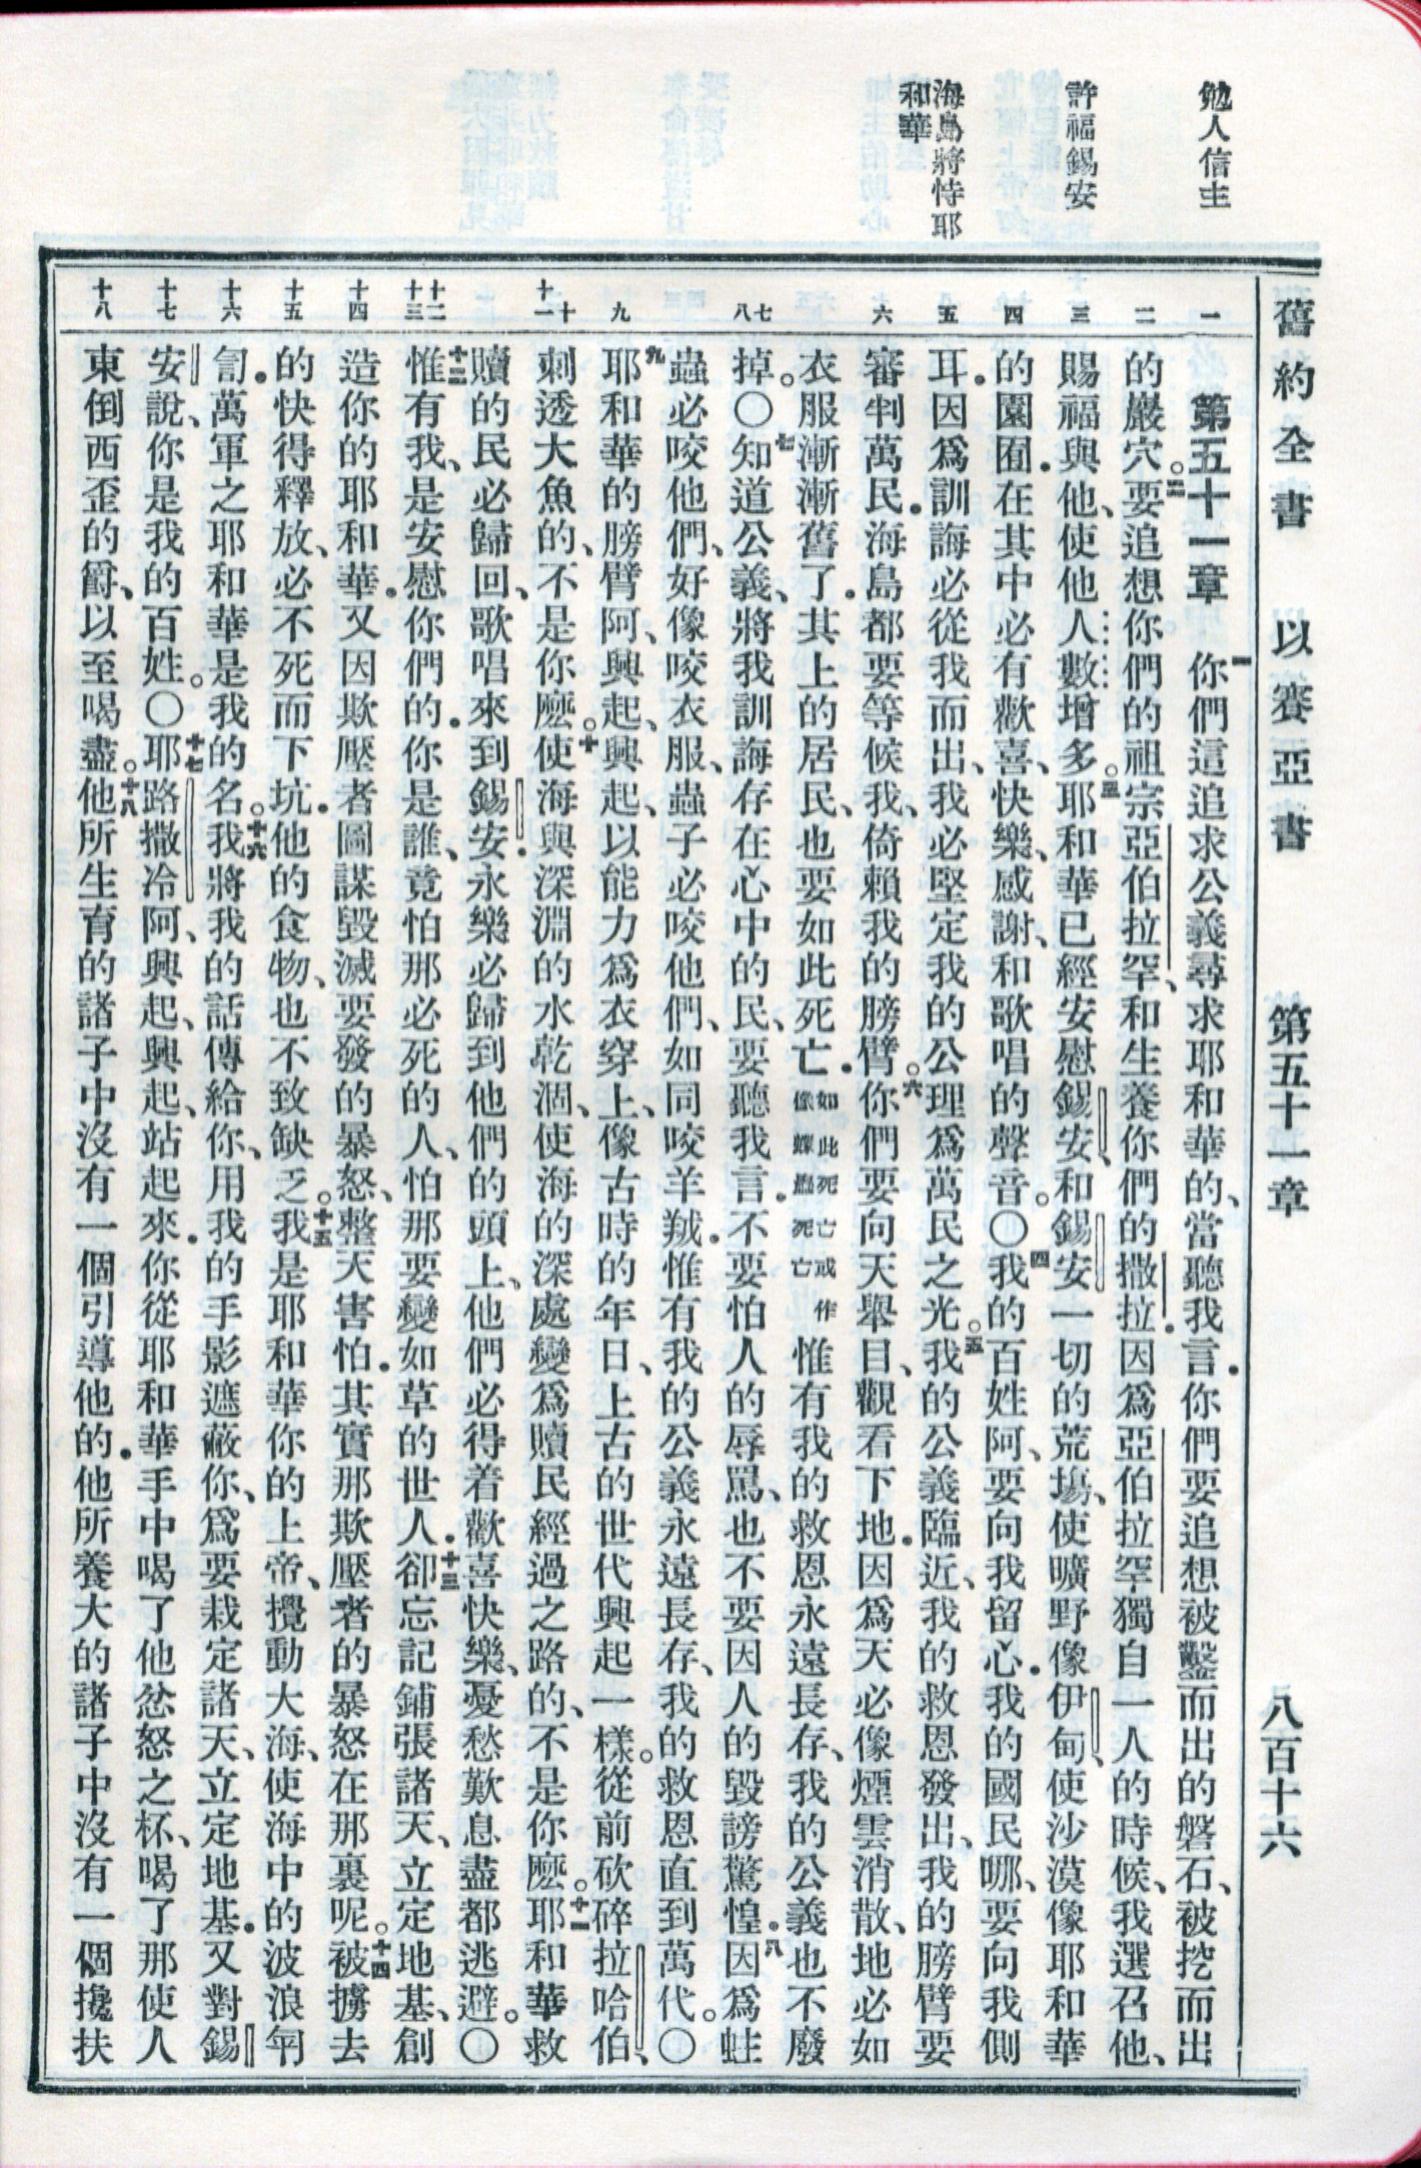 舊約全書　以賽亞書　第五十一章　八百十六
勉人信主
許福錫安
海島將恃耶
和華
一
二
三
四
五
六
七
八
九
十
十一
十二
十三
十四
十五
十六
十七
十八
第五十一章　一你們這追求公義尋求耶和華的、當聽我言．你們要追想被鑿而出的磐石、被挖而出
的巖穴。二要追想你們的祖宗亞伯拉罕、和生養你們的撒拉．因爲亞伯拉罕獨自一人的時候、我選召他、
賜福與他、使他人數增多。三耶和華已經安慰錫安、和錫安一切的荒塲、使曠野像伊甸、使沙漠像耶和華
的園囿．在其中必有歡喜、快樂、感謝、和歌唱的聲音。〇四我的百姓阿、要向我留心．我的國民哪、要向我側
耳．因爲訓誨必從我而出、我必堅定我的公理爲萬民之光。五我的公義臨近、我的救恩發出、我的膀臂要
審判萬民．海島都要等候我、倚賴我的膀臂。六你們要向天舉目、觀看下地．因爲天必像煙雲消散、地必如
衣服漸漸舊了．其上的居民、也要如此死亡．如此死亡或作像蠓蟲死亡惟有我的救恩永遠長存、我的公義也不廢
掉。〇七知道公義、將我訓誨存在心中的民、要聽我言．不要怕人的辱罵、也不要因人的毀謗驚惶．八因爲蛀
蟲必咬他們、好像咬衣服、蟲子必咬他們、如同咬羊羢．惟有我的公義永遠長存、我的救恩直到萬代。〇
九耶和華的膀臂阿、興起、興起、以能力爲衣穿上、像古時的年日、上古的世代興起一樣。從前砍碎拉哈伯、
刺透大魚的、不是你麽。十使海與深淵的水乾涸、使海的深處變爲贖民經過之路的、不是你麽。十一耶和華救
贖的民必歸回、歌唱來到錫安．永樂必歸到他們的頭上、他們必得着歡喜快樂、憂愁歎息盡都逃避。〇
十二惟有我、是安慰你們的．你是誰、竟怕那必死的人、怕那要變如草的世人．十三卻忘記鋪張諸天、立定地基、創
造你的耶和華．又因欺壓者圖謀毀滅要發的暴怒、整天害怕．其實那欺壓者的暴怒在那裏呢。十四被擄去
的快得釋放、必不死而下坑．他的食物、也不致缺乏。十五我是耶和華你的上帝、攪動大海、使海中的波浪匉
訇．萬軍之耶和華是我的名。十六我將我的話傳給你、用我的手影遮蔽你、爲要栽定諸天、立定地基．又對錫
安說、你是我的百姓。〇十七耶路撒冷阿、興起、興起、站起來．你從耶和華手中喝了他忿怒之杯、喝了那使人
東倒西歪的爵、以至喝盡。十八他所生育的諸子中沒有一個引導他的．他所養大的諸子中沒有一個攙扶